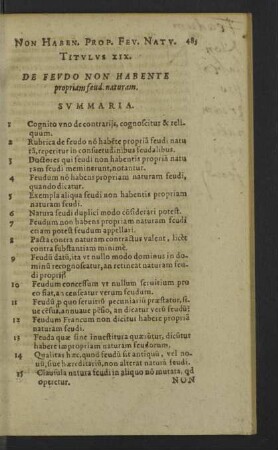 NON HABEN. PROP. FEV. NATV. 48
TITVLVS XIX.
DE FEVDO NON HABENTE
propriam feud. naturam.
SVMMARIA.
1 Cognito vno de contrarijs, cognoscitur & reli-
quum.
2 Rubrica de feudo nō habēte propriā feudi natu
rā, reperitur in consuetudinibus feudalibus.
3 Doctores qui feudi non habentis propriā natu
ram feudi meminerunt, notantur.
4 Feudum nō habens propriam naturam feudi,
quando dicatur.
5 Exempla aliqua feudi non habentis propriam
naturam feudi.
6 Natura feudi duplici modo cōsiderari potest.
7 Feudum non habens propriam naturam feudi
etiam potest feudum appellari.
8 Pacta contra naturam contractus valent, licèt
contra substantiam minimè.
9 Feudū datū, ita vt nullo modo dominus in do-
minū recognoscatur, an retineat naturam feu
di propriā
10 Feudum concessum vt nullum seruitium pro
eo fiat, an censeatur verum feudum.
11 Feudū, p quo seruitiū pecuniariū præstatur, si-
ue cēsus, annuaue pēsio, an dicatur verū feudū
12 Feudum Francum non dicitur habere propriā
naturam feudi.
13 Feuda quæ sine inuestitura quæruntur, dicūtur
habere impropriam naturam feudorum.
14 Qualitas hæc, quod feudū sit antiquū, vel no-
uū, siue hæreditariū, non alterat naturā feudi.
15 Clausula natura feudi in aliquo nō mutata, qd
operetur.
NON